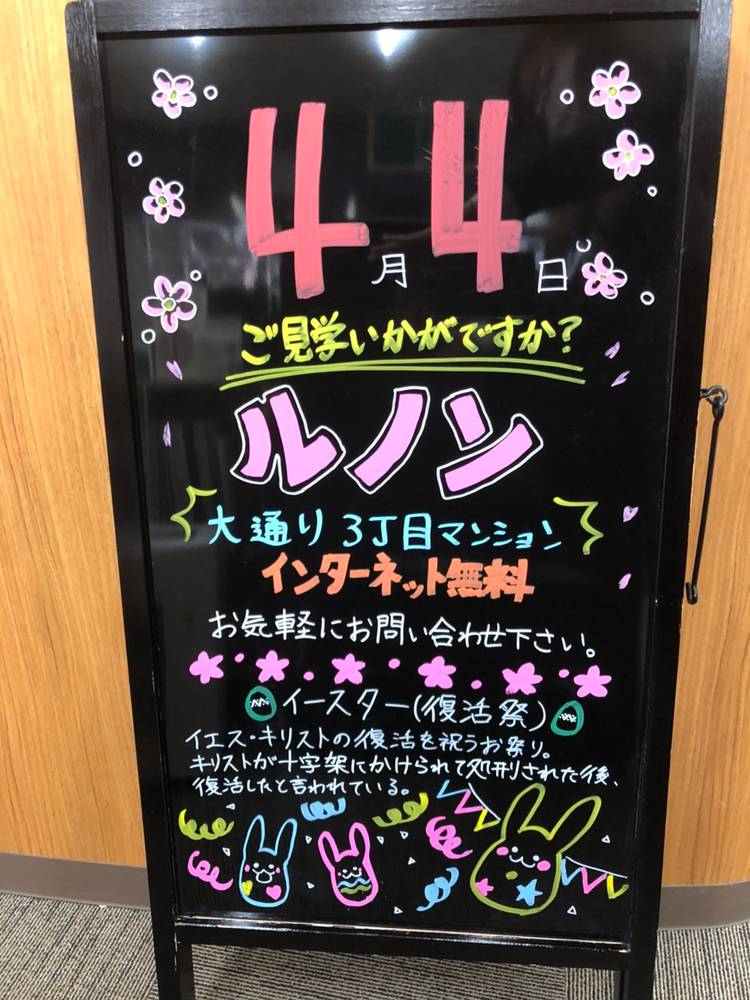 4月4日
ご見学いかがですか?
ルノン
大通り3丁目マンション
インターネット無料
お気軽にお問い合わせ下さい。
イースター(復活祭)
イエス・キリストの復活を祝うお祭り。
キリストが十字架にかけられて処刑された後、
復活したと言われている。